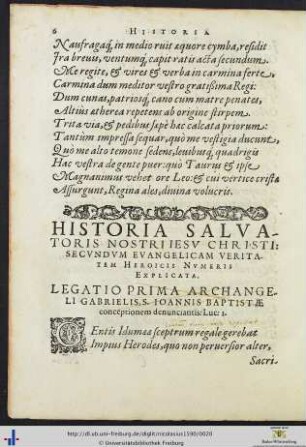 6 HISTORIA
Naufragaq́; in medio ruit æquore cymba, resîdit
Ira breuis, ventumq́; capit ratis acta secundum.
Me regite, & vires & verba in carmina ferte,
Carmina dum meditor vestro gratißima Regi:
Dum cunas, patriosq́; cano cum matre penates,
Altius ætherea repetens ab origine stirpem.
Trita via, & pedibus sæpè hac calcata priorum:
Tantùm impressa sequar, quò me vestigia ducunt,
Quò me alto temone sedens, leuibusq́; quadrigis
Hac vestra de gente puer: quò Taurus & ipse
Magnanimus vehet ore Leo: & cui vertice crista
Assurgunt, Regina ales, diuina volucris.
HISTORIA SALVA-
TORIS NOSTRI IESV CHRISTI:
SECVNDVM EVANGELICAM VERITA-
TEM HEROICIS NVMERIS
EXPLICATA.
LEGATIO PRIMA ARCHANGE-
LI GABRIELIS, S. IOANNIS BAPTISTÆ
conceptionem denunciantis: Luc: 1.
GEntis Idumææ sceptrum regale gerebat
Impius Herodes, quo non peruersior alter,
Sacri-
http://dl.ub.uni-freiburg.de/diglit/nicolausius1590/0020
© Universitätsbibliothek Freiburg
Baden-Württemberg